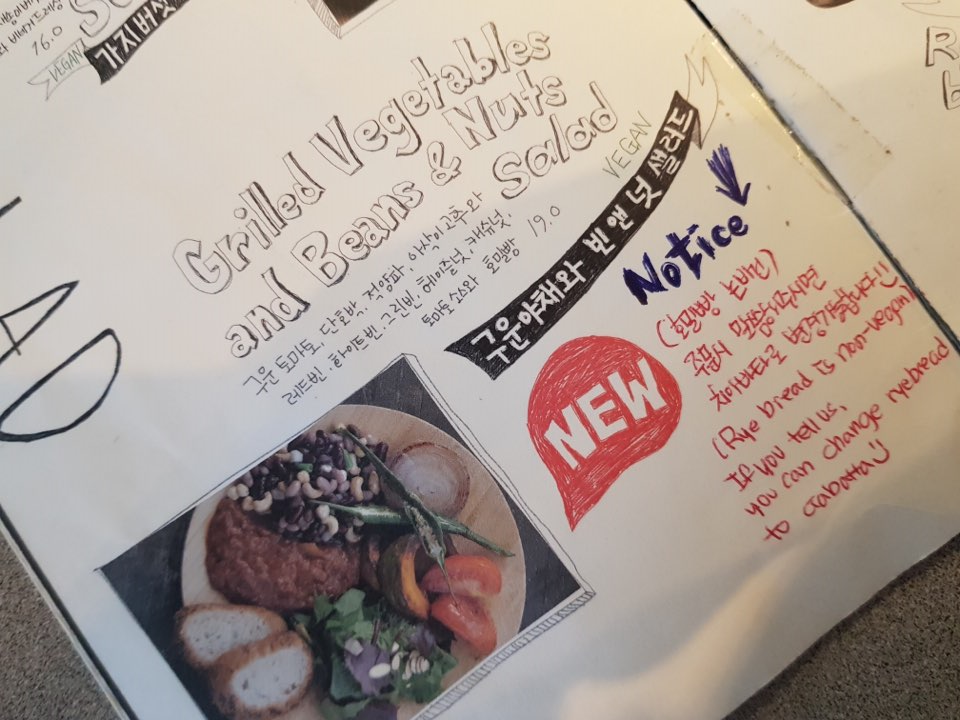 16.0
VEGAN
가지버섯
Grilled Vegetables
and Beans & Nuts
Salad
구운 토마토, 단호박, 적양파, 아삭이고추와
레드빈, 화이트빈, 그린빈, 헤이즐넛, 캐슈넛,
토마토 소스와 호밀빵 19.0
VEGAN
구운야채와 빈 앤 넛 샐러드
Notice
NEW
(호밀빵 논비건)
주문시 말씀해주시면
치아바타로 변경가능합니다!!
(Rye bread is non-vegan)
If you tell us,
you can change ryebread
to ciabatta
AD
R